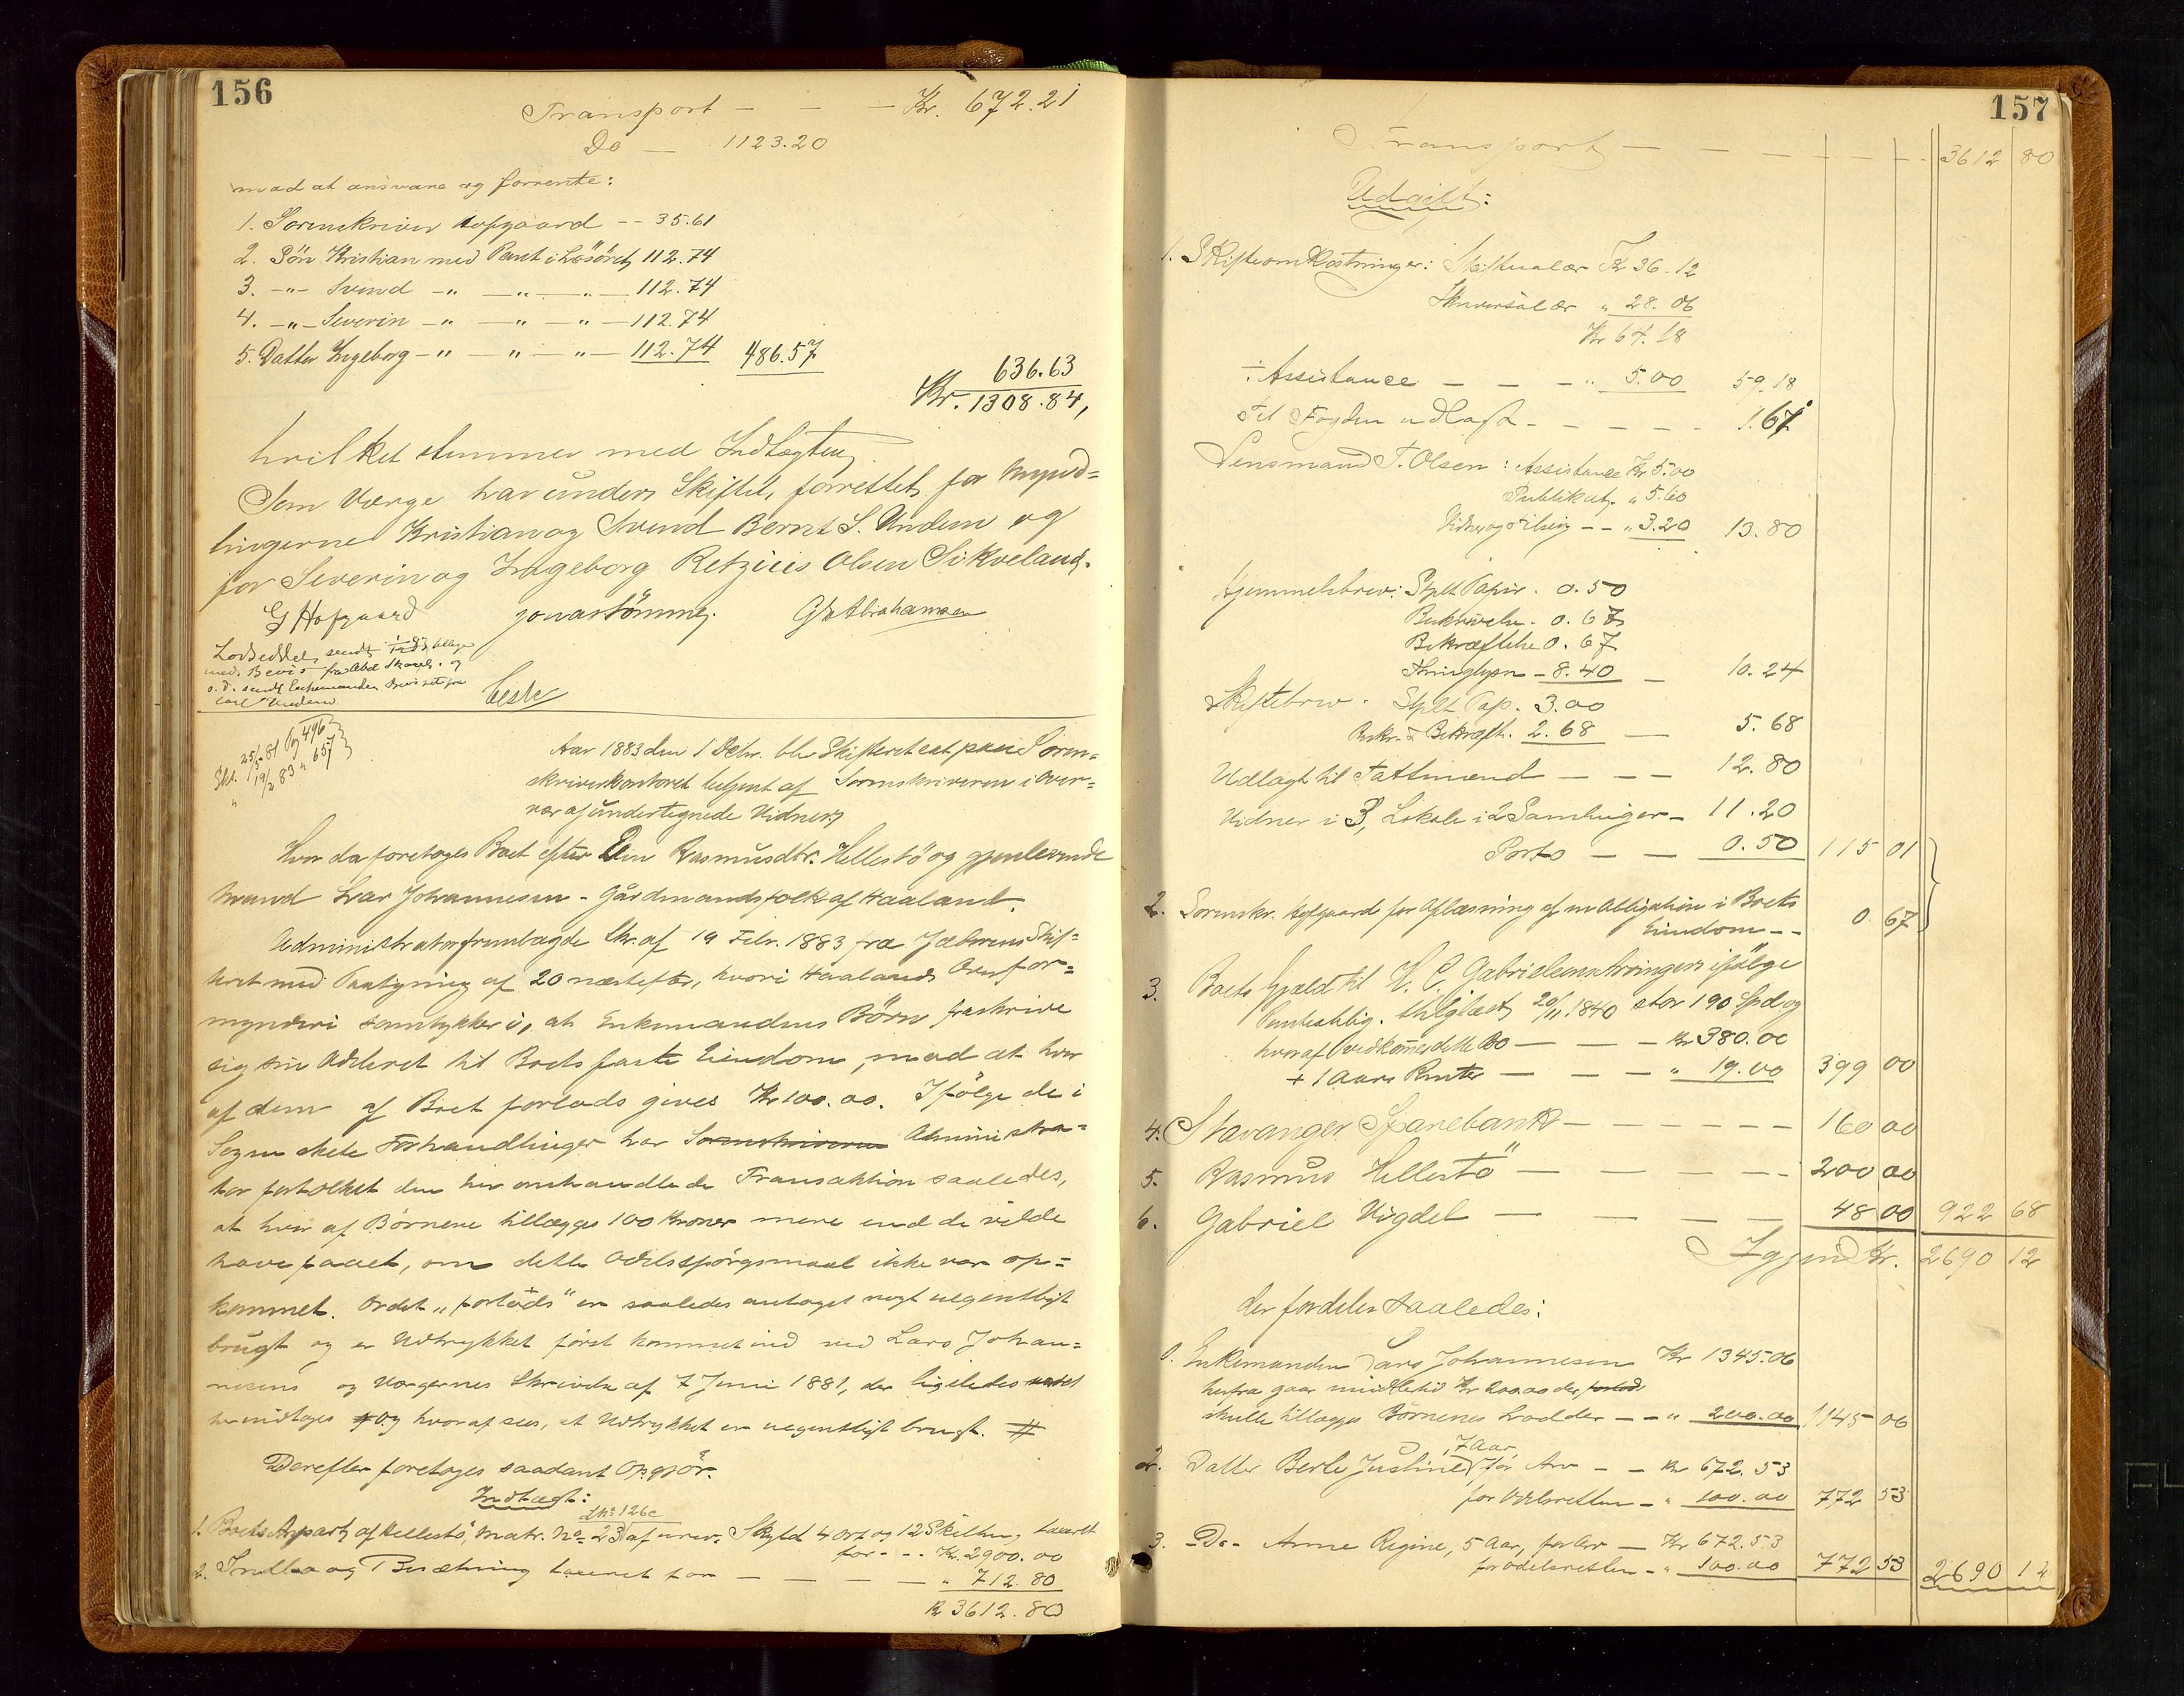 156
Transport — — — Kr. 672.21
Do — 1123.20
mod at ansvare og forrente:
1. Sorenskriver Hofgaard -- 35.61
2. Sön Kristian med Pant i Lösöret, 112.74
3. -"- Svend -"- —"—"— 112.74
4. -"- Severin -"- —"—"— 112.74
5. Datter Ingeborg -"- —"—"— 112.74 486.57
636.63
Kr. 1308.84,
hvilket stemmer med Indtægten.
Som Værge har under Skiftet, forrettet for Mynd=
lingerne Kristian og Svend Bernt S. Undem og
for Severin og Ingeborg Retzius Olsen Sikveland.
G Hofgaard jonastömmej. G W Abrahamsen
Lodseddel, sendt
med Bevis fra Abel og
s. d. sendt Enkemanden Bevis ret fra
Carl Undem
Cesh
Skt. 25/5 81 Pag 496
" 19/2 83 " 657
Aar 1883 den 1 Debr. blev Skifteret sat paa Soren=
skriverkontoret betjent af Sorenskriveren i Over=
vær af undertegnede Vidner,
Hvor da foretoges Boet efter Elin Rasmusdtr. Hellestö og gjenlevende
Mand Lars Johannesen - Gårdmandsfolk af Haaland.
Administrator fremlagde Skr. af 19 Febr. 1883 fra Jæderens Skif=
teret med Paategning af 20 næstefter, hvori Haalands Overfor=
mynderi samtykker i, at Enkemandens Börn fraskrive
sig sin Odelsret til Boets faste Eiendom, mod at hver
af dem af Boet forlods gives Kr 100.00. Ifölge de i
Sagen skete Forhandlinger har Sorenskriveren Administra=
tor fortolket den her omhandlede Transaktion saaledes,
at hver af Börnene tillægges 100 Kroner mere end de vilde
have faaet, om dette Odelsspörgsmaal ikke var op=
kommet. Ordet „forlods" er saaledes antaget nogt uegentligt
brugt og er Udtrykket först kommet ind ved Lars Johan=
nesens og Værgernes Skrivelse af 7 Juni 1881, der ligeledes
her indtages # og hvoraf sees, at Udtrykket er uegentligt brugt. #
Derefter foretoges saadant Opgjör.
Indtægt:
Lno 126c
1. Boets Anpart, af Hellestö, Matr. No 23 af urev. Skyld 4 ort og 12 Skilling, taxeret
for - - Kr. 2900.00
2. Indbo og Besætning taxeret for — — — — " 712.80
Kr 3612.80
157
Transport — — — — — — 3612 80
Udgift:
1. Skifteomkostninger: Skiftesalær Kr 36.12
Skriversalær " 28.06
Kr 64.18
÷ Assistance — — — " 5.00 59.18
Til Fogden udlagt - — — — — 1.67
Lensmand T. Olsen: Assistance Kr 5.00
Publikat. " 5.60
Vidner og Tilsig - - " 3.20 13.80
Hjemmelsbrev: Stplt Papir. 0.50
Beskrivelse. 0.67
Bekræftelse 0.67
Thinglysn - 8.40 — 10.24
Skiftebrev. Stplt Pap. 3.00
Beskr. & Bekræft. 2.68 — 5.68
Udlagt til Taxtmænd — — — 12.80
Vidner i 3, Lokale i 2 Samlinger — 11.20
Porto — — 0.50 115 01
2. Sorenskr. Hofgaard for Aflæsning af en Obligation i Boets
Eiendom -- 0 67
3. Boets Gjæld til H. C. Gabrielsens Arvinger ifölge
Panteoblig. thinglæst, 20/11 1840 stor 190 Spd. og
hvoraf vedkommer dette Bo — — — Kr 380.00
+ 1 Aars Renter — — — " 19.00 399 00
4. Stavanger Sparebank — — — — — — 160 00
5. Rasmus Hellestö — — — — — — 200 00
6. Gabriel Vigdel — — — — 48 00 922 68
Igjen Kr. 2690 12
der fordeles saaledes:
1. Enkemanden Lars Johannesen Kr 1345.06
herfra gaar imidlertid Kr 200.00 der, forlods
skulle tillægges Börnenes Lodder — — " 200.00 1145 06
2. Datter Berte Justine, 7 Aar, för Arv — — Kr 672.53
for Odelsretten — " 100.00 772 53
3. -Do- Anne Regine, 5 Aar, for Arv — Kr 672.53
for Odelsretten — " 100.00 772 53 2690 12